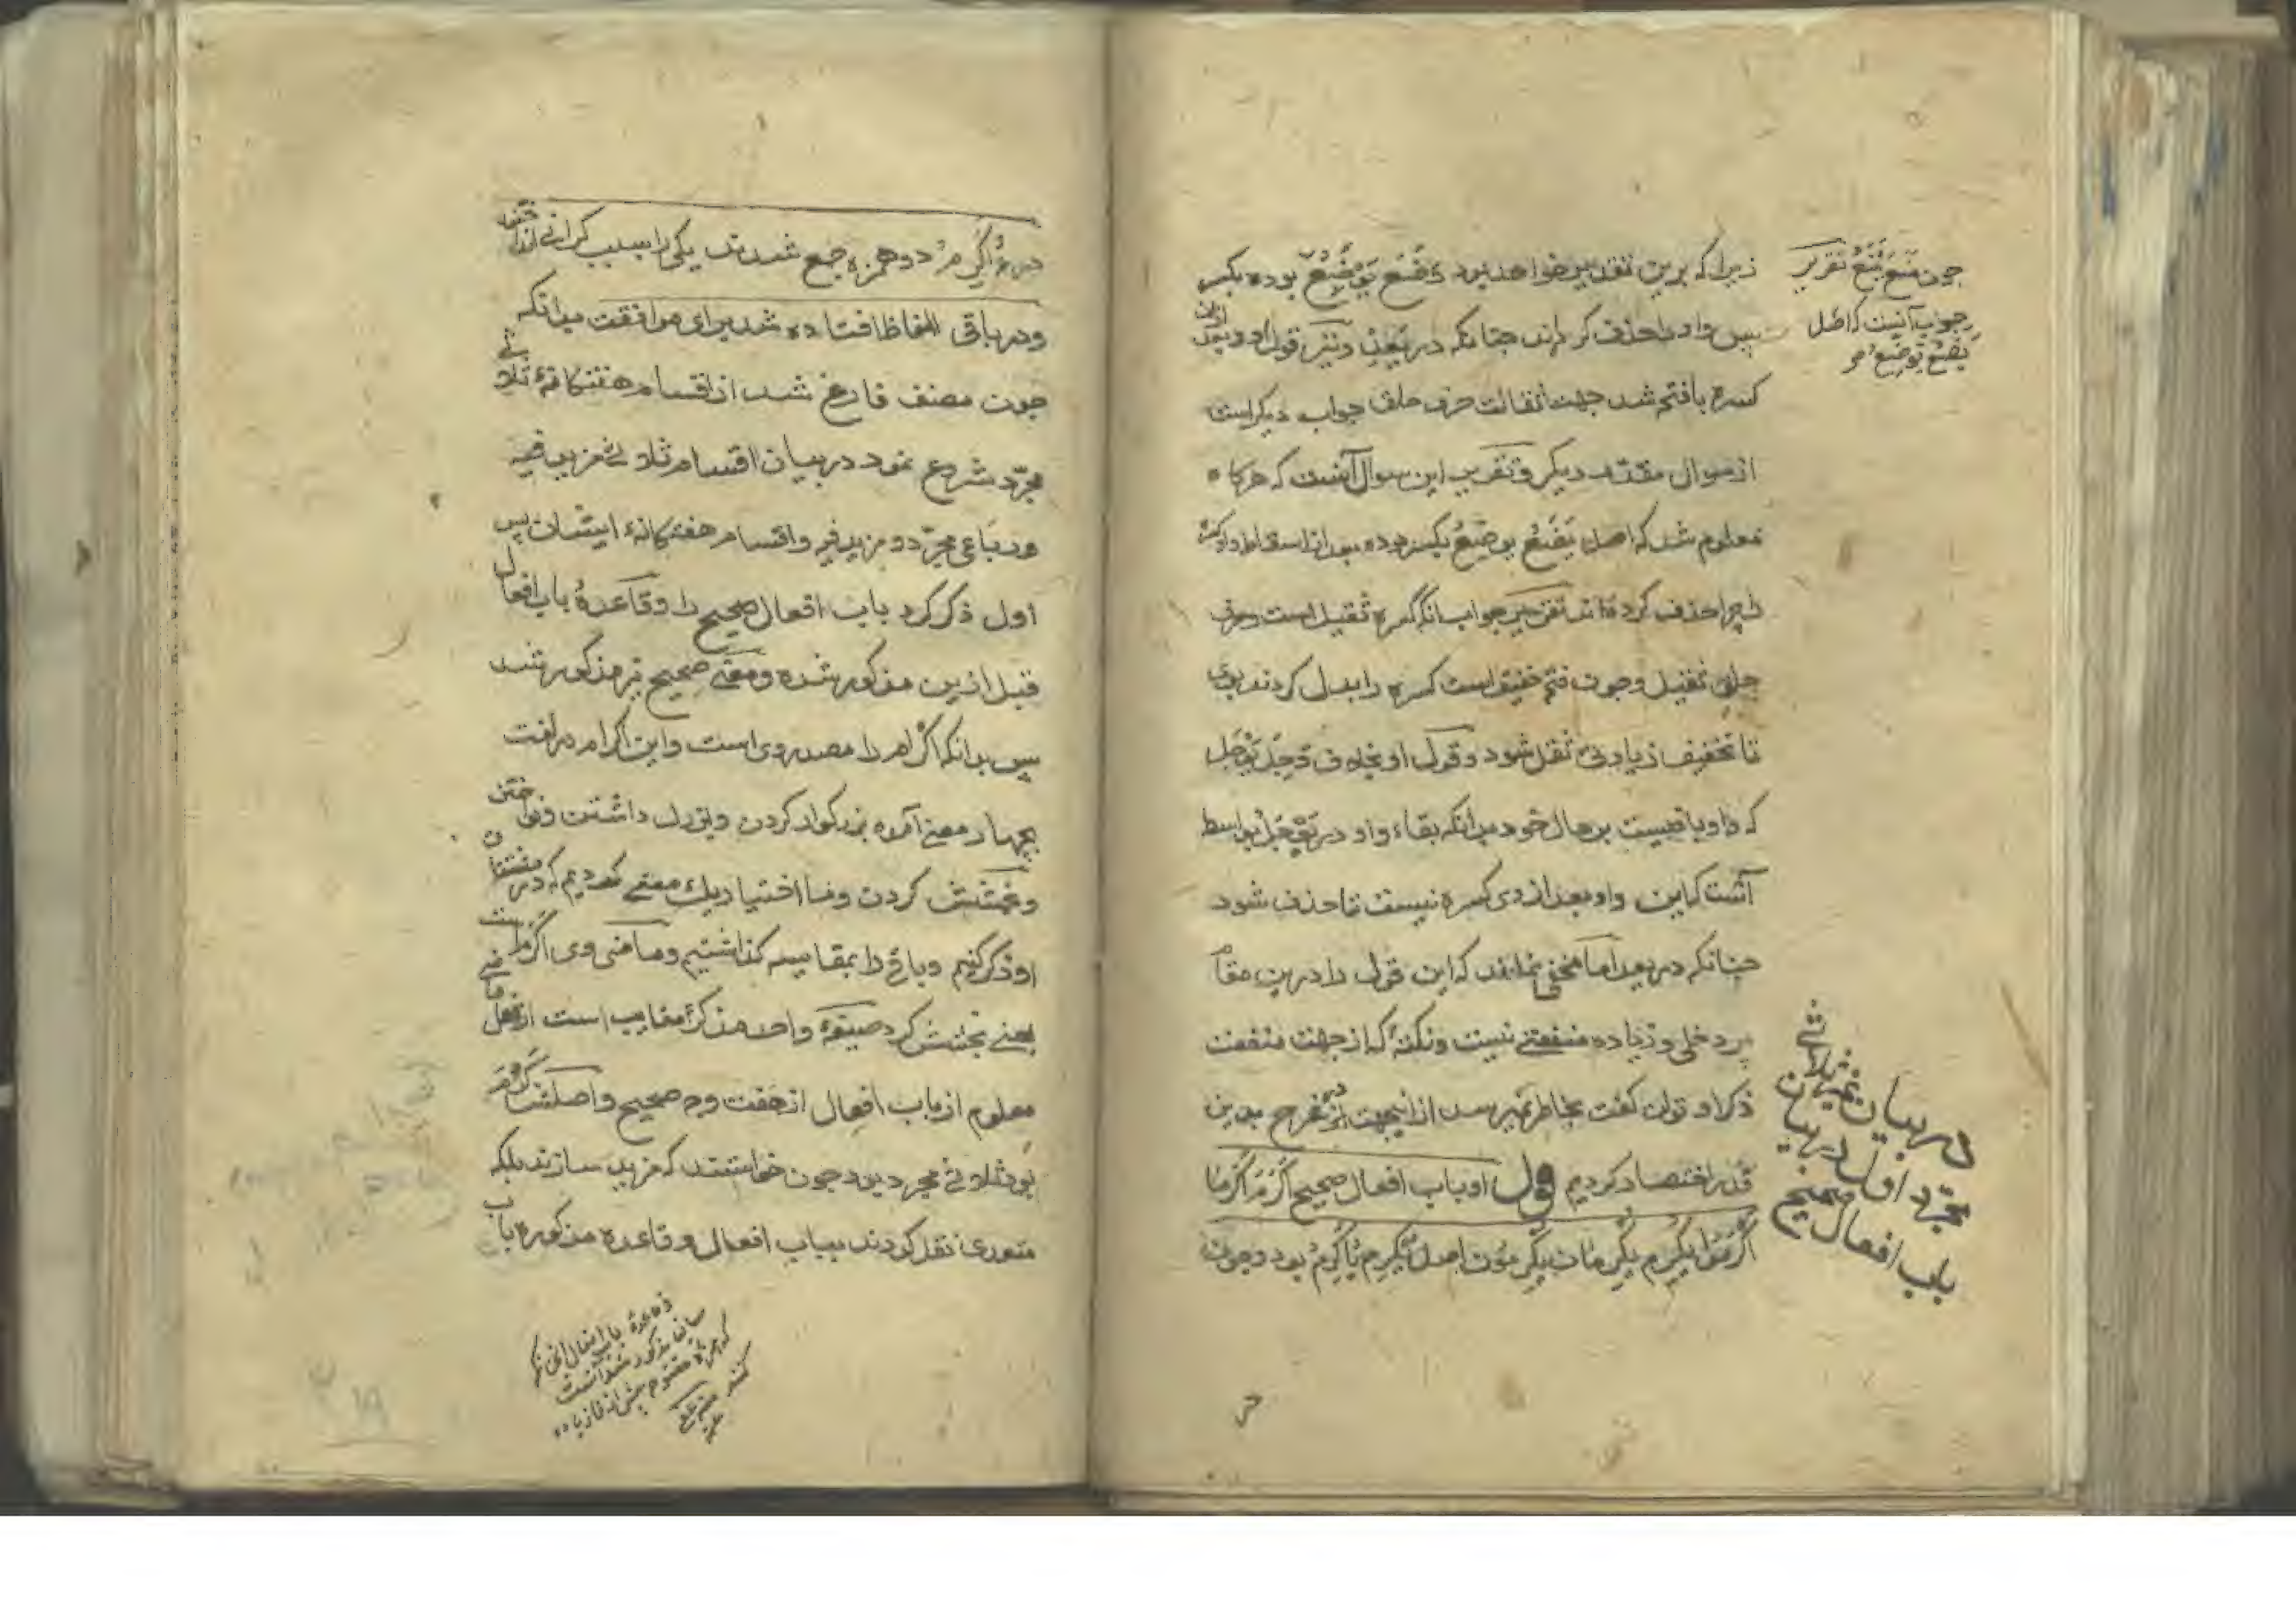 زیرا که برین تقدیر خواهد بود وَضَعَ یَوضِعُ بوده بکسر
پس واو را حذف کردند چنانکه در یَعِدُ و نیز قول او و نبود
کسره با فتح شد جهت ثقالت حرف حلق جواب دیگر است
از سوال مقدر دیگر و تقریر این سوال آنست که هرگاه
معلوم شد که اصل یَضَعُ یوضِعُ بکسر بوده بعد از اسقاط واو کسره
را چرا حذف کرده‌اند تقریر جواب آنکه کسره ثقیل است و حرف
حلق ثقیل و چون فتح خفیف است کسره را بدل کردند بوی
تا تخفیف زیادتی ثقل شود و قوله او بخلاف وَجِلَ یَوجَل
که واو باقیست بر حال خود بدانکه بقاء واو در یَوجَل بواسطه
آنست که این واو بعد از وی کسره نیست تا حذف شود
چنانکه در یعد اما مخفی نماند که این قول را درین مقام
پر دخلی و زیاده منفعتی نیست و نکته که از جهت منفعت
ذکر او توان گفت بخاطر نمیرسد از اینجهت در شرح بدین
قدر اختصار کردیم قوله او باب افعال صحیح اَکْرَمَ اَکْرَمَا
اَکْرَمُوا یُکْرِمُ یُکْرِمَانِ یُکْرِمُونَ اصل یُکْرِمُ یُاَکْرِمُ بود و چون
چون یَضَعُ تقریر
جواب آنست که اصل
یَضَعُ یَوضِعُ
در بیان ثلاثی
مجرد اول در بیان
باب افعال صحیح
در اُاَکْرِمُ دو همزه جمع شدند یکی را بسبب گرانی انداختند
و در باقی الفاظ افتاده شد برای موافقت بدانکه
چون مصنف فارغ شد از اقسام هفتگانهٔ ثلاثی
مجرّد شروع نمود در بیان اقسام ثلاثی مزید فیه
و رباعی مجرّد و مزید فیه و اقسام هفتگانهٔ ایشان پس
اول ذکر کرد باب افعال صحیح را و قاعدهٔ باب افعال
قبل ازین مذکور شده و معنی صحیح نیز مذکور شد
پس بدانکه اَکْرَمَ را مصدر وی است و این اکرام در لغت
بچهار معنی آمده بزرگوار کردن و بزرگ داشتن و نواختن
و بخشش کردن و ما اختیار یک معنی کردیم که در مشتقات
او ذکر کنیم و باقی را بمقایسه گذاشتیم و ماضی وی اَکْرَمَ است
یعنی بخشش کرد صیغهٔ واحد مذکر غایب است از فعل ماضی
معلوم از باب افعال از هفت وجه صحیح و اصلش کَرُمَ
بود ثلاثی مجرد بود چون خواستند که مزید سازند بلکه
متعدی نقل کردند بباب افعال و قاعده مذکوره باب
قاعدهٔ باب افعال
سابقا مذکور شده است